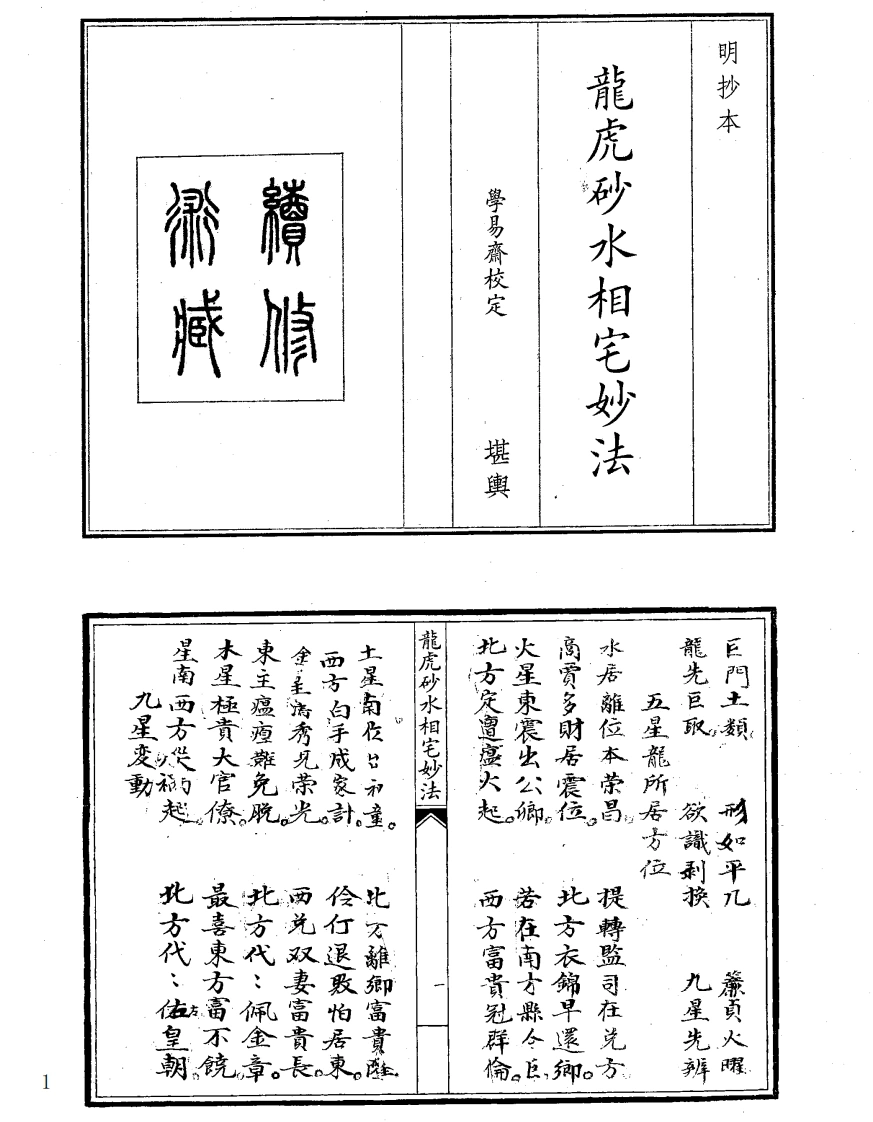 明抄本
龍虎砂水相宅妙法
學易齋校定 堪輿
續修
術藏
巨門土類 形如平几 簾貞火曜
龍先巨取 欲識剥換 九星先辨
五星龍所居方位
水居離位本荣昌 提轉監司在兑方
商賈多財居震位 北方衣錦早還鄉
火星東震出公卿 若在南方縣令臣
北方定遭瘟火起 西方富貴冠群倫
龍虎砂水相宅妙法
一
土星南位 童 北方離鄉富貴
西方白手成家計 伶仃退敗怕居東
金星 秀見荣光 西兑双妻富貴長
東主瘟㾮難免脱 北方代〻佩金章
木星極貴大官僚 最喜東方富不饒
星南西方 禍起 北方代〻佐皇朝
九星変動
1